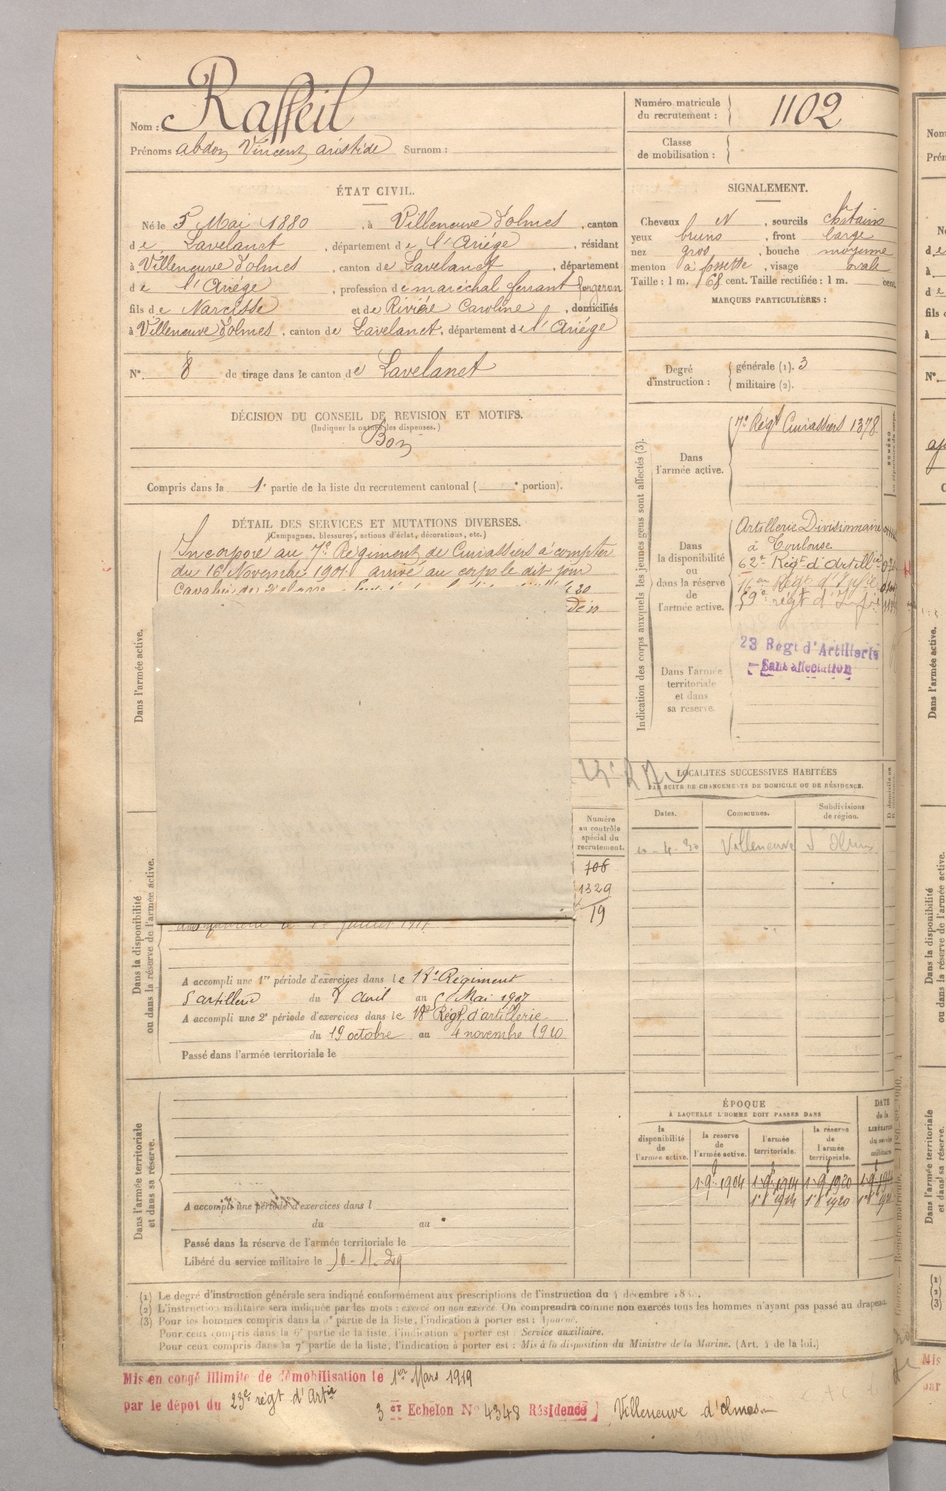 Nom : Rasseil
Prénoms Abdon, Vincent, Aristide Surnom :
Numéro matricule du recrutement : 1102
Classe de mobilisation :
ÉTAT CIVIL.
Né le 5 Mai 1880, à Villeneuve d'olmes, canton
de Lavelanet, département de l'Ariége, résidant
à Villeneuve d'olmes, canton de Lavelanet, département
de l'Ariége, profession de maréchal ferrant forgeron
fils de Narcisse et de Rivière Caroline, domiciliés
à Villeneuve d'olmes, canton de Lavelanet, département de l'Ariége
N° 8 de tirage dans le canton de Lavelanet
SIGNALEMENT.
Cheveux N, sourcils châtains
yeux bruns, front large
nez gros, bouche moyenne
menton à fossette, visage ovale
Taille : 1 m. 68 cent. Taille rectifiée : 1 m. cent.
MARQUES PARTICULIÈRES :
Degré d'instruction : générale (1). 3
militaire (2).
DÉCISION DU CONSEIL DE REVISION ET MOTIFS.
(Indiquer la nature des dispenses.)
Bon
Compris dans la 1e partie de la liste du recrutement cantonal ( e portion).
DÉTAIL DES SERVICES ET MUTATIONS DIVERSES.
(Campagnes, blessures, actions d'éclat, décorations, etc.)
Incorporé au 7e Régiment de Cuirassiers à compter
du 16 Novembre 1901 arrivé au corps le dit jour
Dans l'armée active.
Indication des corps auxquels les jeunes gens sont affectés (3).
Dans l'armée active.
7e Régt Cuirassiers 1378
Dans la disponibilité ou dans la réserve de l'armée active.
Artillerie Divisionnaire
à Toulouse
62e Régt d'Artillie
59e régt d'Infie
Dans l'armée territoriale et dans sa réserve.
23 Régt d'Artillerie
Sans affectation
LOCALITÉS SUCCESSIVES HABITÉES
PAR SUITE DE CHANGEMENTS DE DOMICILE OU DE RÉSIDENCE.
Dates. Communes. Subdivisions de région.
Villeneuve d'Olmes
Numéro au contrôle spécial du recrutement.
708
1329
19
Dans la disponibilité ou dans la réserve de l'armée active.
A accompli une 1re période d'exercices dans le 18e Régiment
d'artillerie du 8 avril au 5 Mai 1907
A accompli une 2e période d'exercices dans le 18e Régt d'artillerie
du 19 octobre au 4 novembre 1910
Passé dans l'armée territoriale le
ÉPOQUE
À LAQUELLE L'HOMME DOIT PASSER DANS
la disponibilité de l'armée active. la réserve de l'armée active. l'armée territoriale. la réserve de l'armée territoriale. DATE de la LIBÉRATION du service militaire.
1-9bre 1904 1-9bre 1914 1-9bre 1920
Dans l'armée territoriale et dans sa réserve.
A accompli une période d'exercices dans l
du au
Passé dans la réserve de l'armée territoriale le
Libéré du service militaire le 10-11-29
(1) Le degré d'instruction générale sera indiqué conformément aux prescriptions de l'instruction du 4 décembre
(2) L'instruction militaire sera indiquée par les mots : exercé ou non exercé. On comprendra comme non exercés tous les hommes n'ayant pas passé au drapeau
(3) Pour les hommes compris dans la partie de la liste, l'indication à porter est : Ajourné.
Pour ceux compris dans la 6e partie de la liste, l'indication à porter est : Service auxiliaire.
Pour ceux compris dans la 7e partie de la liste, l'indication à porter est : Mis à la disposition du Ministre de la Marine. (Art. 4 de la loi.)
Mis en congé illimité de démobilisation le 1er Mars 1919
par le dépot du 23e régt d'Artie
3 e Echelon N° 4348 Résidence ] Villeneuve d'olmes